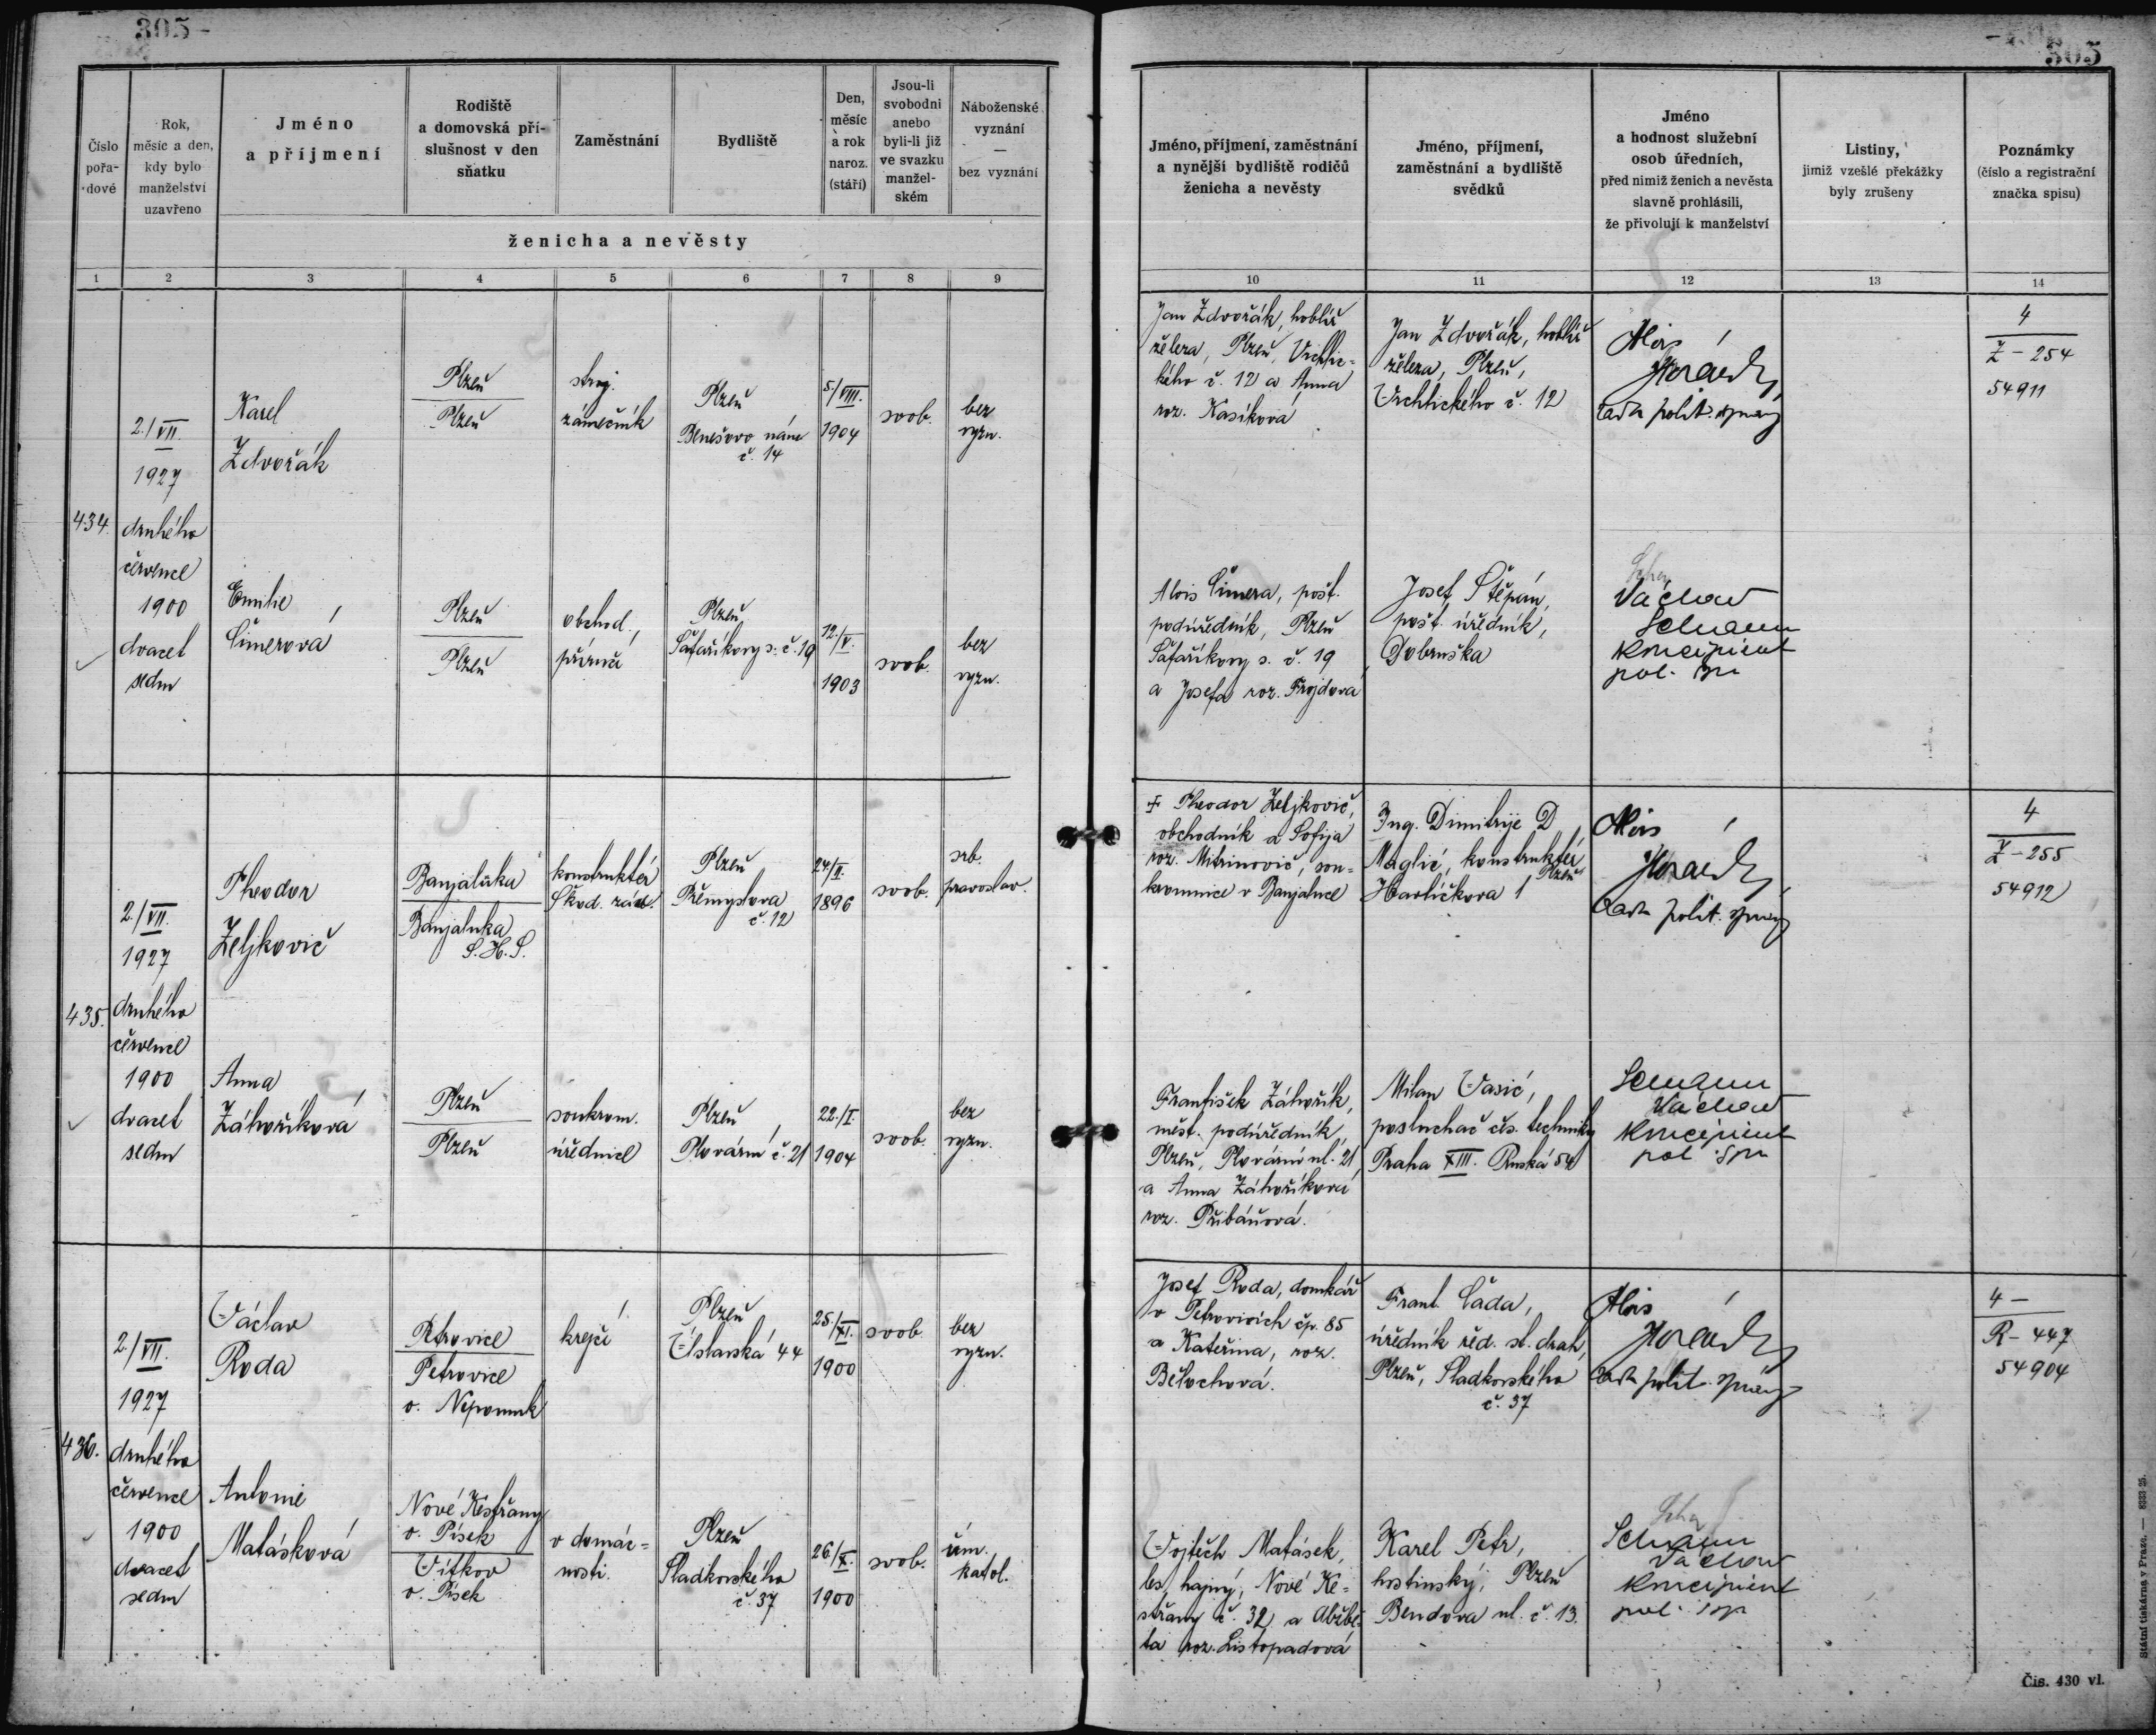 305 -
505
Číslo pořa-dové
Rok, měsíc a den, kdy bylo manželství uzavřeno
Jméno a příjmení
Rodiště a domovská pří-slušnost v den sňatku
Zaměstnání
Bydliště
Den, měsíc a rok naroz. (stáří)
Jsou-li svobodni anebo byli-li již ve svazku manžel-ském
Náboženské vyznání — bez vyznání
ženicha a nevěsty
1 2 3 4 5 6 7 8 9
Jméno, příjmení, zaměstnání a nynější bydliště rodičů ženicha a nevěsty
Jméno, příjmení, zaměstnání a bydliště svědků
Jméno a hodnost služební osob úředních, před nimiž ženich a nevěsta slavně prohlásili, že přivolují k manželství
Listiny, jimiž vzešlé překážky byly zrušeny
Poznámky (číslo a registrační značka spisu)
10 11 12 13 14
434.
2./VII.
1927
druhého
července
1900
dvacet
sedm
Karel
Zdvořák
Plzeň
Plzeň
stroj.
zámečník
Plzeň
Benešovo nám.
č. 14
5./VIII.
1904
svob.
bez
vyzn.
Jan Zdvořák, hoblíř
železa, Plzeň, Vrchlic-
kého č. 12 a Anna
roz. Kasíková
Jan Zdvořák, hoblíř
železa, Plzeň,
Vrchlického č. 12
Alois
rada polit. správy
4
Z - 254
54911
Emilie
Šimerová
Plzeň
Plzeň
obchod.
příručí
Plzeň
Šafaříkovy s. č. 19
12./V.
1903
svob.
bez
vyzn.
Alois Šimera, pošt.
podúředník, Plzeň
Šafaříkovy s. č. 19
a Josefa roz. Frojdova
Josef Štěpán,
pošt. úředník,
Dobruška
Václav
koncipient
pol.
435.
2./VII.
1927
druhého
července
1900
dvacet
sedm
Theodor
Zeljkovič
Banjaluka
Banjaluka
S.H.S.
konstruktér
Škod. záv.
Plzeň
Přemyslova
č. 12
24/II.
1896
svob.
srb.
pravoslav.
+ Theodor Zeljkovič,
obchodník a Sofija
roz. Mitrinovič, sou-
kromnice v Banjaluce
Ing. Dimitrije D
Maglić, konstruktér,
Plzeň
Havlíčkova 1
Alois
rada polit. správy
4
Z - 255
54912
Anna
Záhoříková
Plzeň
Plzeň
soukrom.
úřednice
Plzeň
Plovární č. 21
22./I.
1904
svob.
bez
vyzn.
František Záhořík,
měst. podúředník,
Plzeň, Plovární ul. 21,
a Anna Záhoříková
roz. Přibáňová.
Milan Vasić,
posluchač čes. techniky
Praha XIII. Ruská 54
Václav
koncipient
pol.
436.
2./VII.
1927
druhého
července
1900
dvacet
sedm
Václav
Roda
Petrovice
Petrovice
o. Nepomuk
krejčí
Plzeň
Úslavská 44
25./XI.
1900
svob
bez
vyzn.
Josef Roda, domkář
v Petrovicích čp. 85
a Kateřina, roz.
Bělochová.
Frant. Čada,
úředník řed. st. drah,
Plzeň, Sladkovského
č. 37
Alois
rada polit. správy
4 -
R - 447
54904
Antonie
Matásková
Nové Kestřany
o. Písek
Vítkov
o. Písek
v domác-
nosti.
Plzeň
Sladkovského
č. 37
26./X.
1900
svob.
řím.
katol.
Vojtěch Matásek,
les. hajný, Nové Ke-
střany č. 32 a Alžbě-
ta roz. Listopadová
Karel Petr,
hostinský, Plzeň
Bendova ul. č. 13.
Václav
koncipient
pol.
Státní tiskárna v Praze. — 8333-25.
Čís. 430 vl.